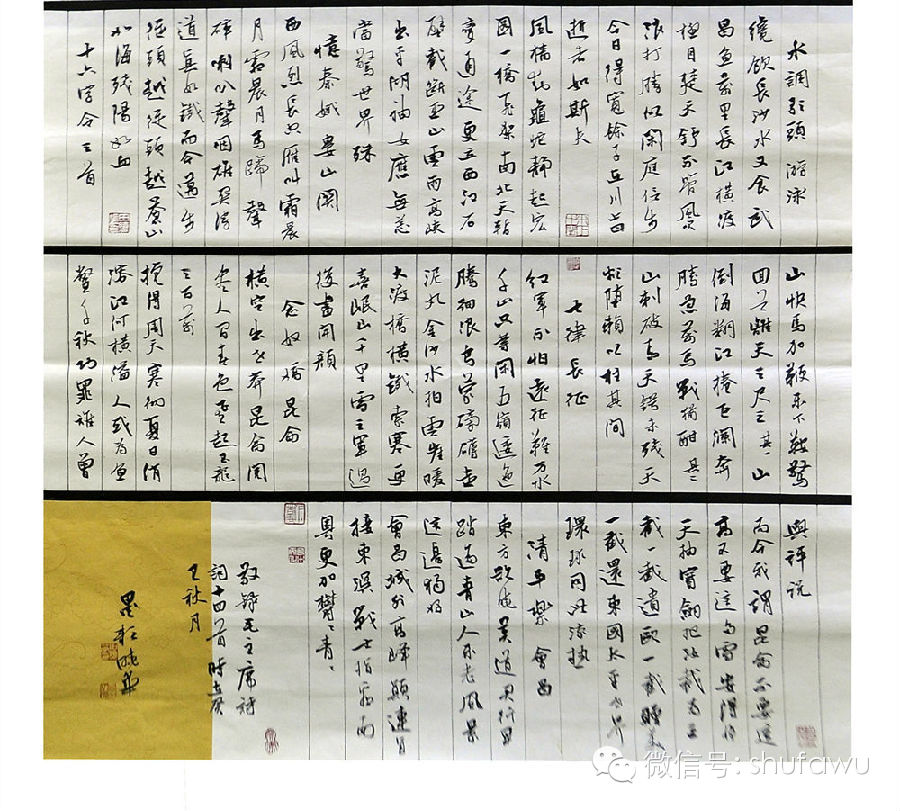 水調歌頭 游泳
纔飲長沙水又食武
昌魚萬里長江橫渡
極目楚天舒不管風吹
浪打勝似閑庭信步
今日得寬餘子在川上曰
逝者如斯夫
風檣動龜蛇靜起宏
圖一橋飛架南北天塹
變通途更立西江石
壁截斷巫山雲雨高峽
出平湖神女應無恙
當驚世界殊
憶秦娥 婁山關
西風烈長空雁叫霜晨
月霜晨月馬蹄聲
碎喇叭聲咽雄關漫
道真如鐵而今邁步
從頭越從頭越蒼山
如海殘陽如血
十六字令三首
山快馬加鞭未下鞍驚
回首離天三尺三 其二 山
倒海翻江捲巨瀾奔
騰急萬馬戰猶酣 其三
山刺破青天鍔未殘天
欲墮賴以柱其間
七律 長征
紅軍不怕遠征難萬水
千山只等閑五嶺逶迤
騰細浪烏蒙磅礴走
泥丸金沙水拍雲崖暖
大渡橋橫鐵索寒更
喜岷山千里雪三軍過
後盡開顏
念奴嬌 昆侖
橫空出世莽昆侖閱
盡人間春色飛起玉龍
三百萬
攪得周天寒徹夏日消
溶江河橫溢人或為魚
鱉千秋功罪誰人曾
與評說
而今我謂昆侖不要這
高不要這多雪安得倚
天抽寶劍把汝裁為三
截一截遺歐一截贈美
一截還東國太平世界
環球同此涼熱
清平樂 會昌
東方欲曉莫道君行早
踏遍青山人未老風景
這邊獨好
會昌城外高峰顛連直
接東溟戰士指看南
粵更加鬱〻青〻
敬錄毛主席詩
詞十四首 時在癸
巳秋月
曉華
微信号: shufawu